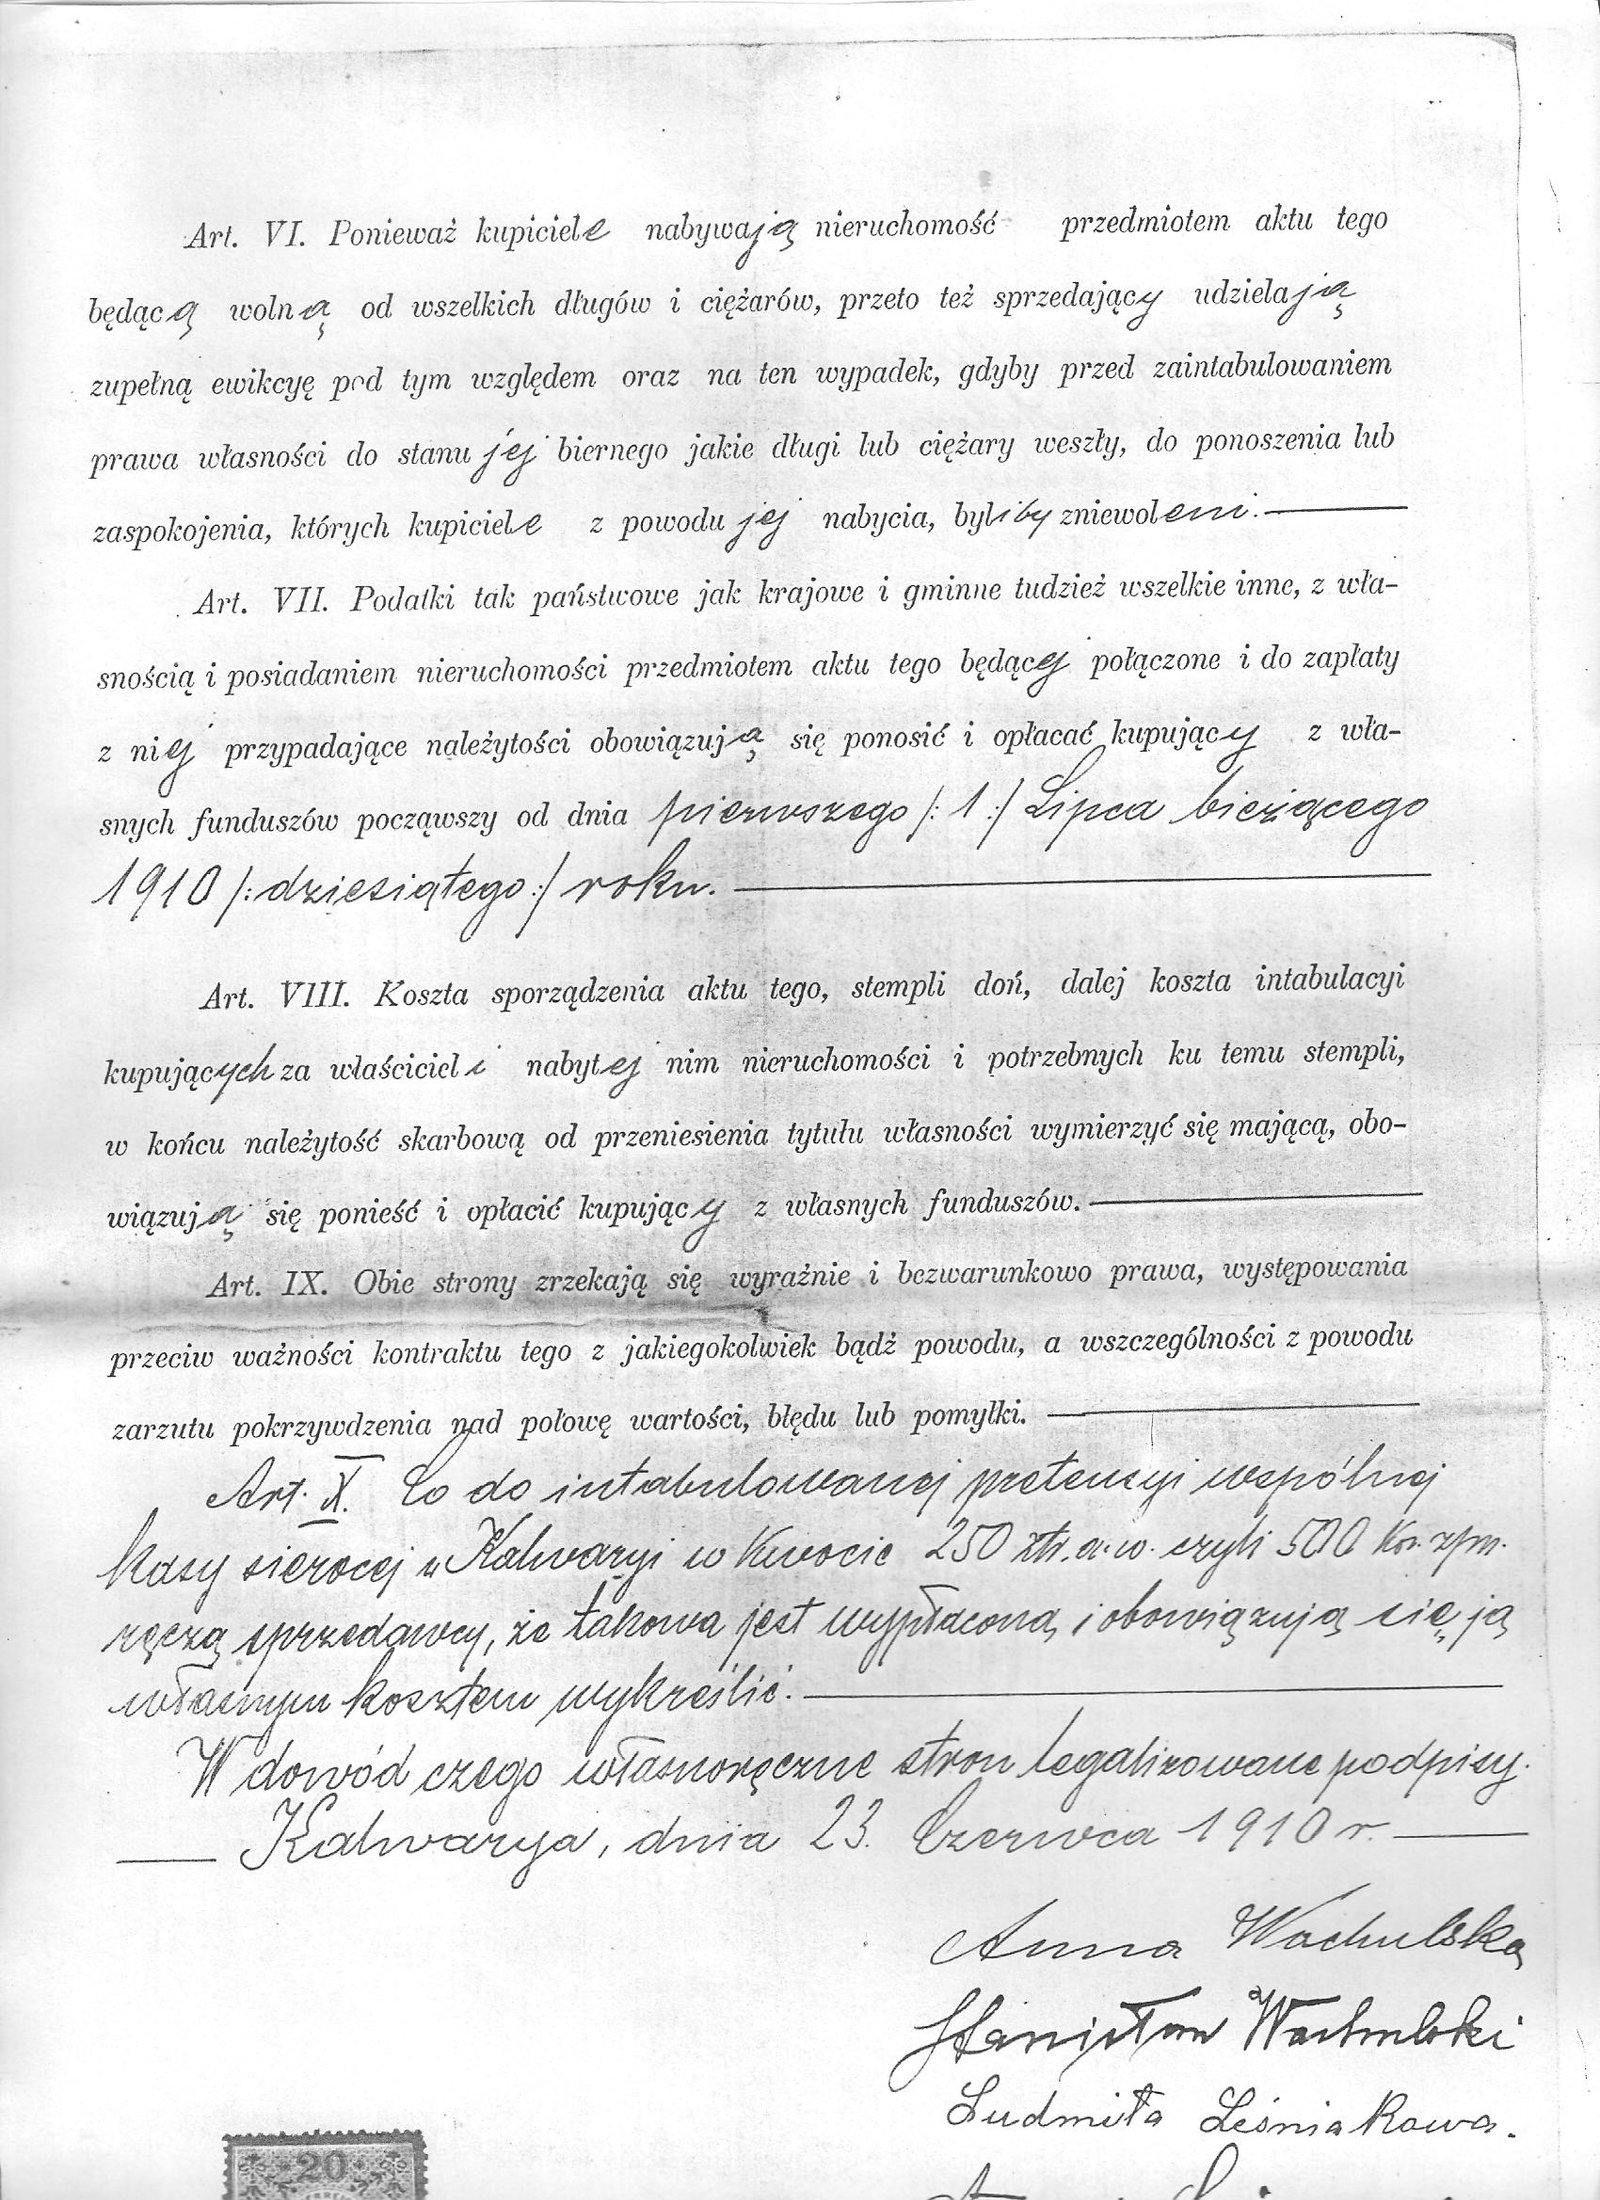 Art. VI. Ponieważ kupiciele nabywają nieruchomość przedmiotem aktu tego
będącą wolną od wszelkich długów i ciężarów, przeto też sprzedający udzielają
zupełną ewikcyę pod tym względem oraz na ten wypadek, gdyby przed zaintabulowaniem
prawa własności do stanu jej biernego jakie długi lub ciężary weszły, do ponoszenia lub
zaspokojenia, których kupiciele z powodu jej nabycia, byliby zniewoleni.
Art. VII. Podatki tak państwowe jak krajowe i gminne tudzież wszelkie inne, z wła-
snością i posiadaniem nieruchomości przedmiotem aktu tego będącej połączone i do zapłaty
z niej przypadające należytości obowiązują się ponosić i opłacać kupujący z wła-
snych funduszów począwszy od dnia pierwszego /: 1 :/ Lipca bieżącego
1910 /: dziesiątego :/ roku.
Art. VIII. Koszta sporządzenia aktu tego, stempli doń, dalej koszta intabulacyi
kupujących za właścicieli nabytej nim nieruchomości i potrzebnych ku temu stempli,
w końcu należytość skarbową od przeniesienia tytułu własności wymierzyć się mającą, obo-
wiązują się ponieść i opłacić kupujący z własnych funduszów.
Art. IX. Obie strony zrzekają się wyraźnie i bezwarunkowo prawa, występowania
przeciw ważności kontraktu tego z jakiegokolwiek bądź powodu, a wszczególności z powodu
zarzutu pokrzywdzenia nad połowę wartości, błędu lub pomyłki.
Art. X. Co do intabulowanej pretensyi wspólnej
kasy sierocej w Kalwaryi w kwocie 250 złr. a. w. czyli 500 Kor. zpm.
ręczą sprzedawcy, że takowa jest wypłaconą i obowiązują się ją
własnym kosztem wykreślić.
W dowód czego własnoręczne stron legalizowane podpisy.
Kalwarya, dnia 23. Czerwca 1910 r.
Anna Wachulska
Stanisław Wachulski
Ludmiła Leśniakowa.
20